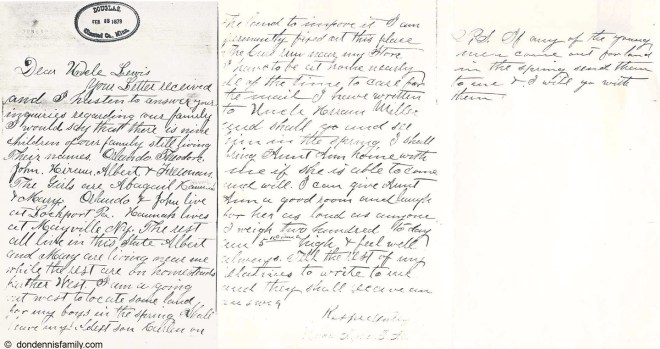 DOUGLAS,
FEB 18 1879
Olmsted Co., Minn.
Dear Uncle Lewis
Your Letter received
and I hasten to answer your
inquiries regarding our family
I would say that there is nine
children of our family still living
Their names. Orlando Theodore
John, Hiram, Albert & Freeman.
The Girls are Abaguil Hannah
& Mary. Orlando & John live
at Lockport Pa. Hannah lives
at Maryville NY. The rest
all live in this State Albert
and Mary are living near me
while the rest are on homesteads
further West. I am a going
out west to locate some land
for my boys in the spring. Shall
leave my oldest son on
the land to improve it I am
permently fixed at this place
The Cars run near my Store
I have to be at home nearly
all of the time to care for
the mail I have written
to Uncle Hiram Miller
and should go and see
him in the Spring. I shall
bring Aunt Ann home with
me if she is able to come
and will. I can give Aunt
Ann a good room and care
for her as good as anyone
I weigh two hundred to day
am 5 high & feel well
always. Tell the rest of my
relatives to write to me
and they shall receive an
answer
Respectfully
P.S. If any of the young
men came out for land
in the Spring send them
to me & I will go with
them
© dondennisfamily.com